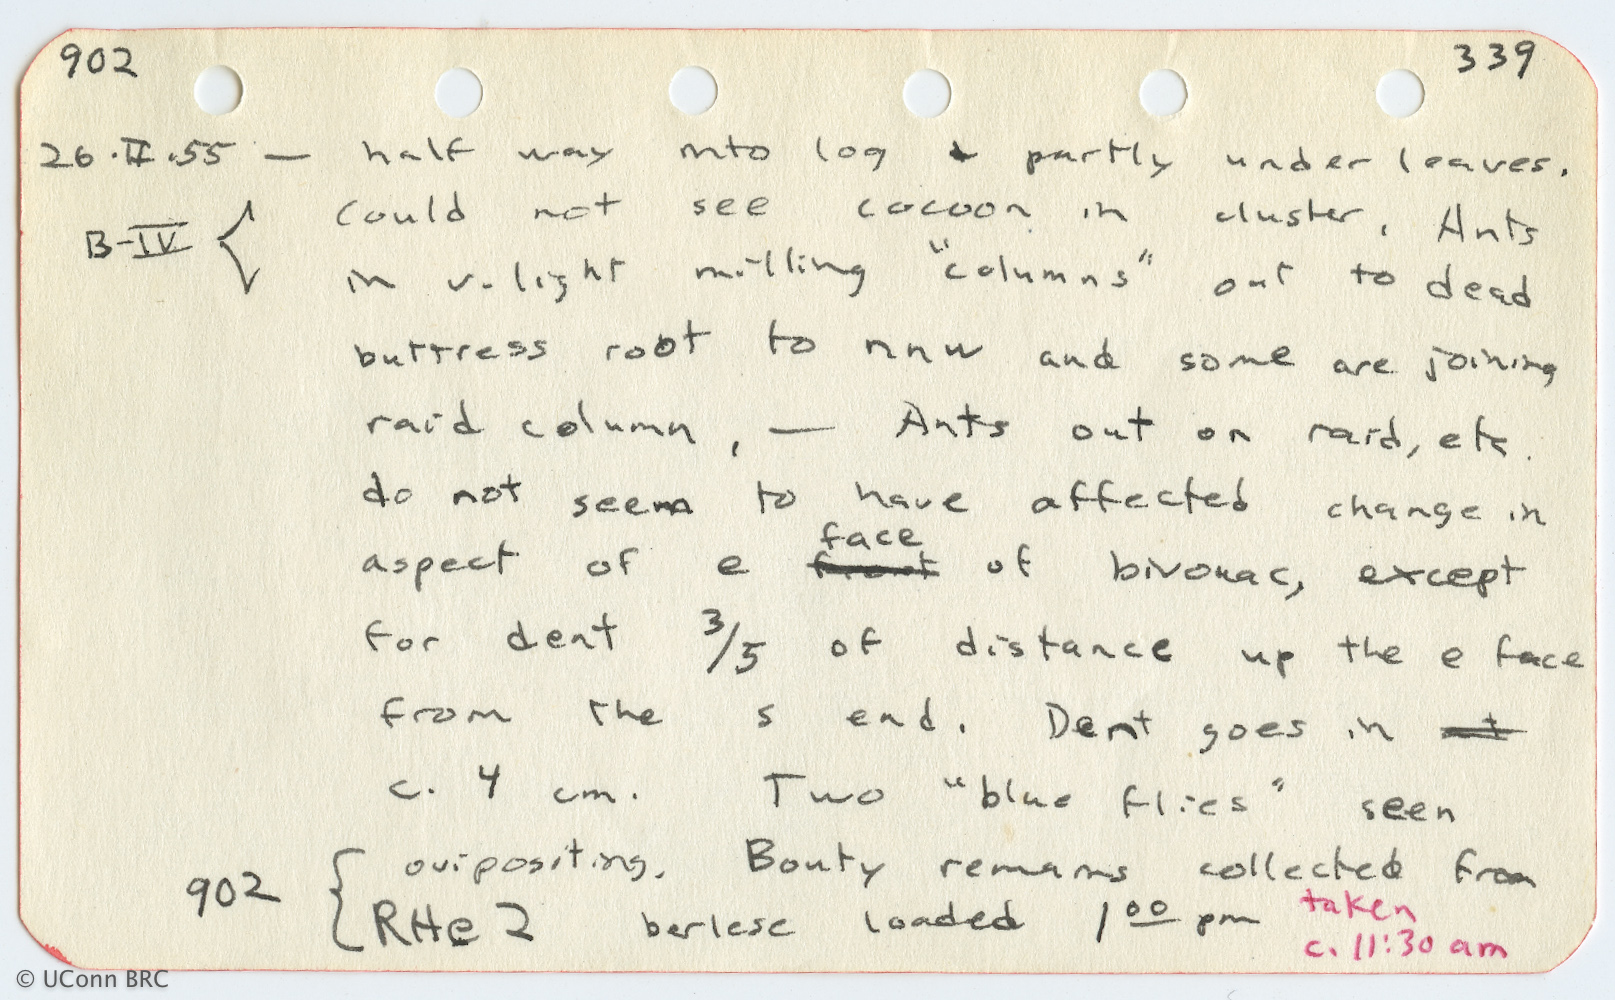 902 339
26.II.55 — half way into log & partly under leaves.
B-IV { Could not see cocoon in cluster. Ants
in v. light milling "columns" out to dead
buttress root to nnw and some are joining
raid column, — Ants out on raid, etc.
do not seem to have affected change in
aspect of e face of bivouac, except
for dent 3/5 of distance up the e face
from the s end. Dent goes in
c. 4 cm. Two "blue flies" seen
902 { ovipositing. Bouty remains collected from
RHe2 berlese loaded 1 00 pm taken
c. 11:30 am
© UConn BRC